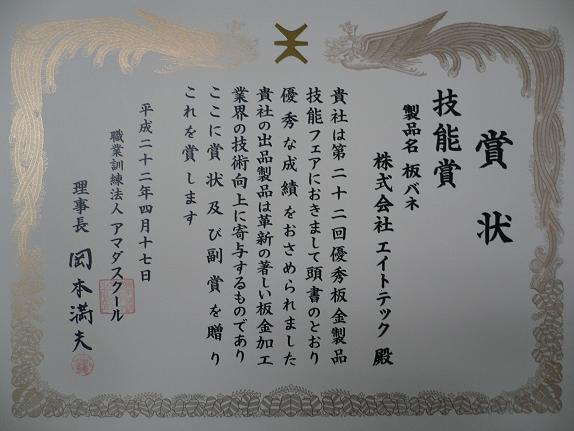 賞状
技能賞
製品名 板バネ
株式会社 エイトテック 殿
貴社は第二十二回優秀板金製品
技能フェアにおきまして頭書のとおり
優秀な成績をおさめられました
貴社の出品製品は革新の著しい板金加工
業界の技術向上に寄与するものであり
ここに賞状及び副賞を贈り
これを賞します
平成二十二年四月十七日
職業訓練法人 アマダスクール
理事長 岡本満夫